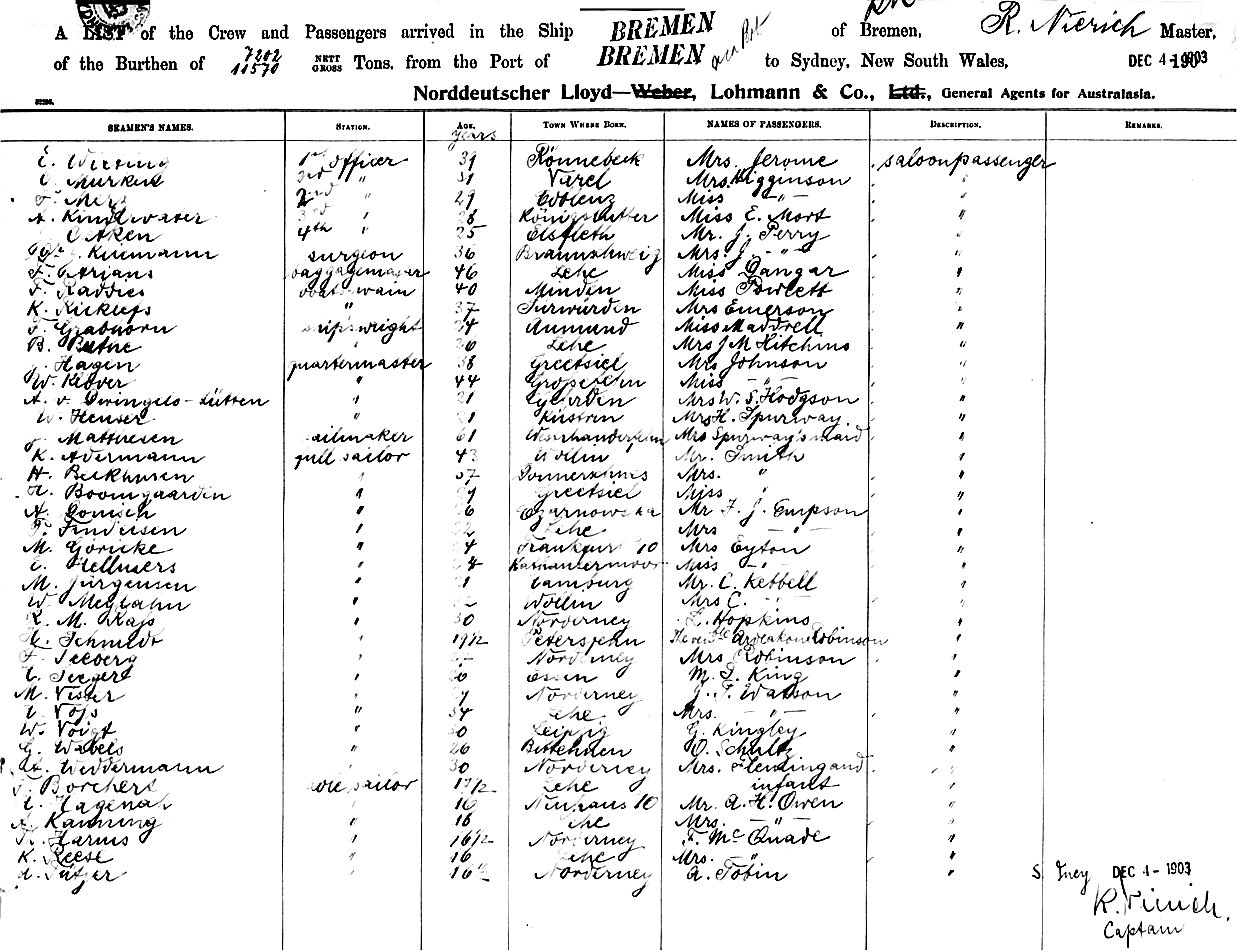 A LIST of the Crew and Passengers arrived in the Ship BREMEN of Bremen, R. Nierich Master,
of the Burthen of 7202 11570 NETT GROSS Tons, from the Port of BREMEN to Sydney, New South Wales, DEC 4-1903
Norddeutscher Lloyd—Weber, Lohmann & Co., Ltd., General Agents for Australasia.
SEAMEN'S NAMES. STATION. AGE. years TOWN WHERE BORN. NAMES OF PASSENGERS. DESCRIPTION. REMARKS.
E. 1st officer 39 Rönnebeck Mrs. Jerome saloonpassenger
Murken 2nd " 31 Varel Mrs. Higginson "
2nd " 29 Coblenz Miss —"— "
A. Kinderwater 3rd " 28 Königslutter Miss E. Mort "
Oetken 4th " 25 Elsfleth Mr. J. Perry "
surgeon 36 Braunschweig Mrs. J. —"— "
F. Adrians baggagemaster 46 Lehe Miss Dangar "
F. Raddies boatswain 40 Minden Miss Fawcett "
K. Ricklefs " 37 Mrs Emerson "
F. Grabhorn shipswright 34 Aumund Miss Maddrell "
B. 26 Lehe Mrs J M Hitchins "
J. Hagen quartermaster 38 Greetsiel Mrs Johnson "
W. Klöver " 44 Miss —"— "
A. v. Swingels-Lütten " 21 Gehrden Mrs W. S. Hodgson "
W. Henser " 21 Küstrin Mrs H. Spurway "
J. Matthiesen sailmaker 61 Mrs Spurway's maid "
K. Avermann full sailor 43 Wollin Mr. Smith "
H. Beckhusen " 37 Mrs. " "
H. Boomgaarden " 29 Greetsiel Miss " "
A. " 26 Mr F. J. Empson "
F. Findeisen " 22 Lehe Mrs —"— "
M. Göricke " 24 Frankfurt Mrs Eyton "
E. Hellmers " 24 Miss —"— "
M. Jürgensen " 21 Hamburg Mr. C. Kebbell "
W. " Wollin Mrs C. —"— "
M. Rass " 30 Norderney L. Hopkins "
H. Schmidt " 19 1/2 Petersfehn The venble Ardeakon Robinson "
F. Seeberg " Norderney Mrs Robinson "
C. Seegers " 20 Essen M. S. King "
M. Visser " Norderney J. T. Watson "
C. Voss " 34 Lehe Mrs. —"— "
W. Voigt " 30 Leipzig G. Kingley "
G. Wabels " 26 O. Schultz "
Weddermann " 30 Norderney Mrs. Flemding and "
Borchers ore sailor 17 1/2 Lehe infant
Hagenah " 16 Neuhaus Mr. A. H. Owen "
A. Kanning " 16 Lehe Mrs. —"— "
H. Harms " 16 1/2 Norderney F. Mc Quade "
K. Reese " 16 Lehe Mrs. —"— "
" 16 Norderney A. Tobin "
Sydney DEC 4-1903
R. Nierich.
Captain